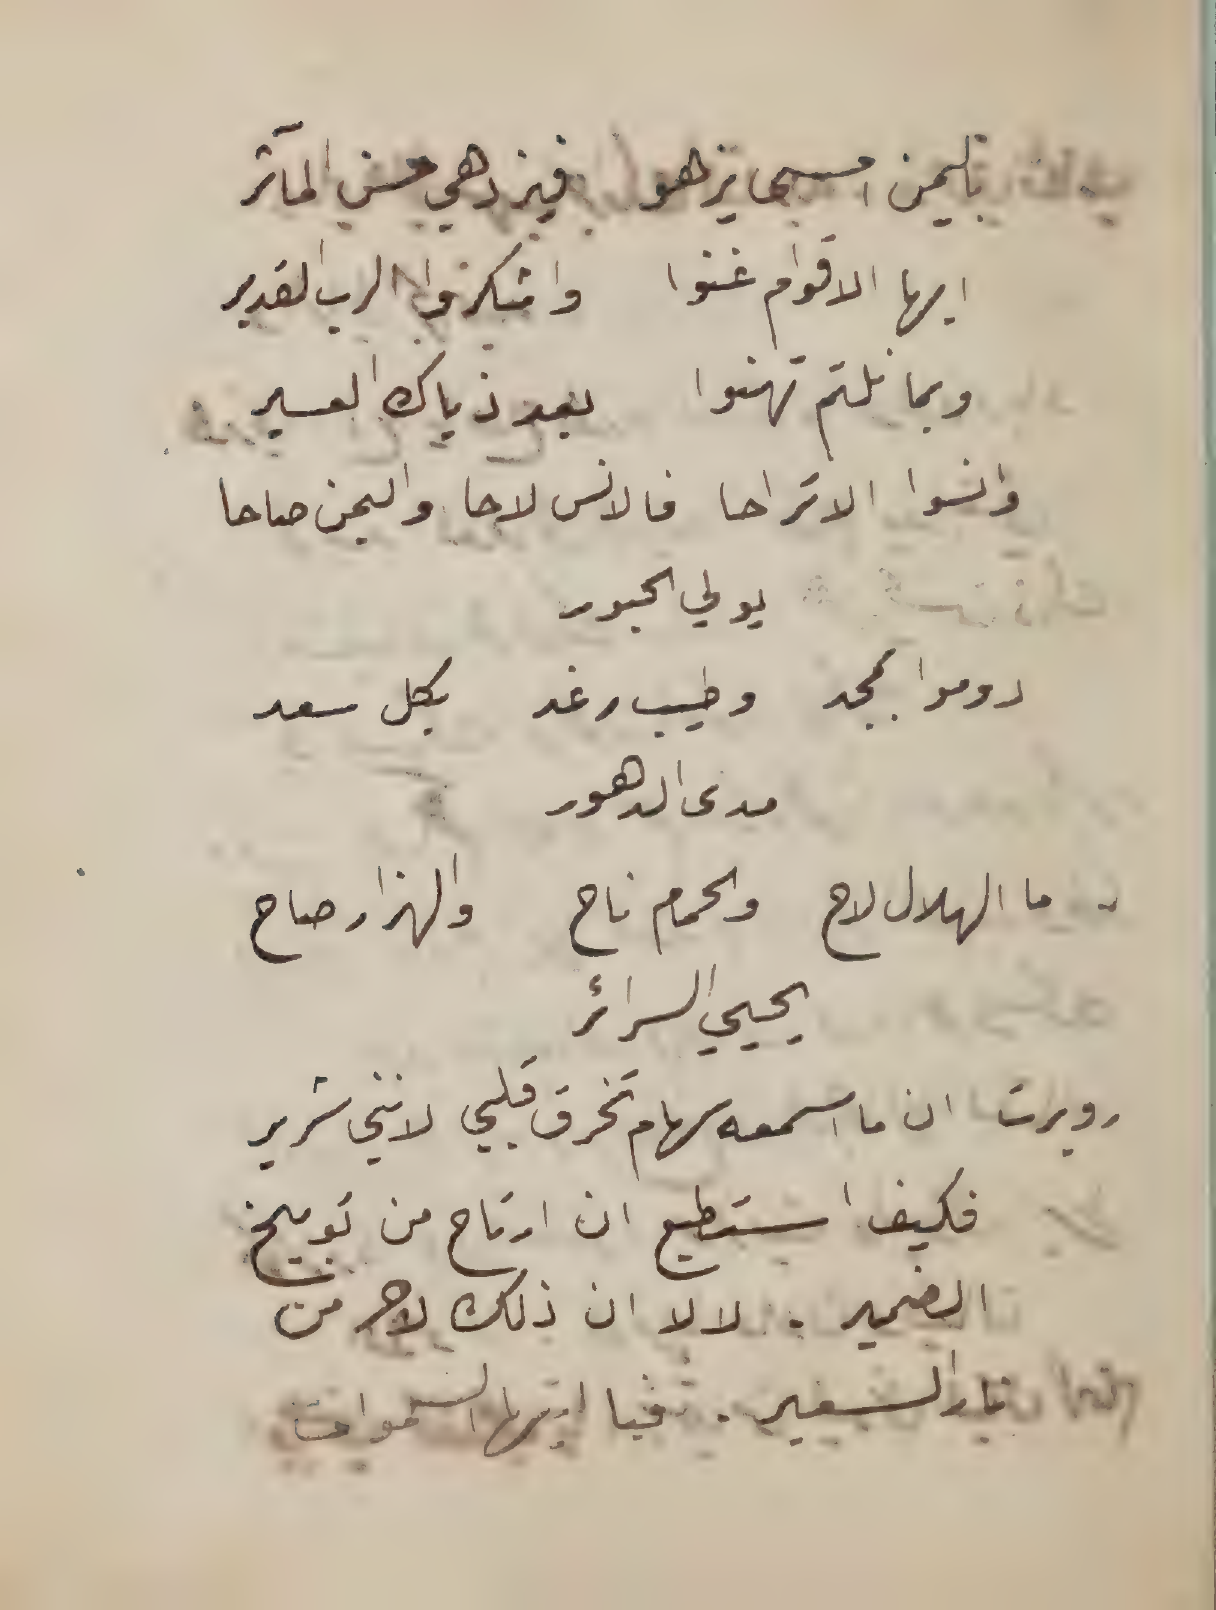 باليمن امسى يزهو فيزدهي حسن المآثر
ايها الاقوام غنوا واشكروا الرب القدير
وبما نلتم تهنوا بعد ذياك العسير
وانسوا الاتراحا فالانس لاحا واليمن صاحا
يولي الحبور
دوموا بمجد وطيب رغد بكل سعد
مدى الدهور
ما الهلال لاح والحمام ناح والهزار صاح
يحيي السرائر
روبرت ان ما اسمعه سهام تخرق قلبي لانني شرير
فكيف استطيع ان ارتاح من توبيخ
الضمير . لا لا ان ذلك لاحر من
نار السعير . فيا ايتها السموات